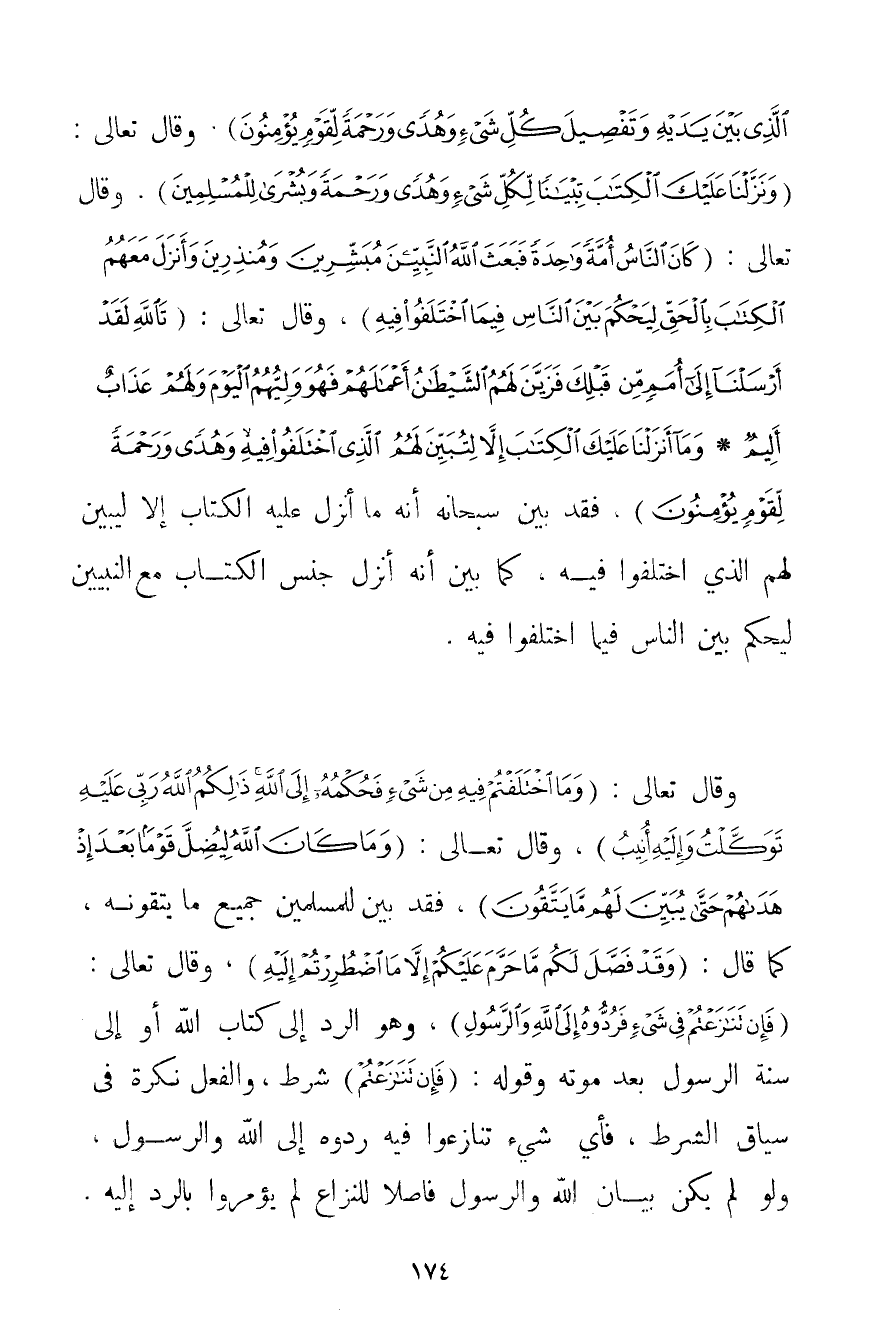 ٱلَّذِى بَيْنَ يَدَيْهِ وَتَفْصِيلَ كُلِّ شَىْءٍ وَهُدًى وَرَحْمَةً لِّقَوْمٍ يُؤْمِنُونَ) . وقال تعالى :
(وَنَزَّلْنَا عَلَيْكَ ٱلْكِتَٰبَ تِبْيَٰنًا لِّكُلِّ شَىْءٍ وَهُدًى وَرَحْمَةً وَبُشْرَىٰ لِلْمُسْلِمِينَ) . وقال
تعالى : (كَانَ ٱلنَّاسُ أُمَّةً وَٰحِدَةً فَبَعَثَ ٱللَّهُ ٱلنَّبِيِّـۧنَ مُبَشِّرِينَ وَمُنذِرِينَ وَأَنزَلَ مَعَهُمُ
ٱلْكِتَٰبَ بِٱلْحَقِّ لِيَحْكُمَ بَيْنَ ٱلنَّاسِ فِيمَا ٱخْتَلَفُوا۟ فِيهِ) ، وقال تعالى : (تَٱللَّهِ لَقَدْ
أَرْسَلْنَآ إِلَىٰٓ أُمَمٍ مِّن قَبْلِكَ فَزَيَّنَ لَهُمُ ٱلشَّيْطَٰنُ أَعْمَٰلَهُمْ فَهُوَ وَلِيُّهُمُ ٱلْيَوْمَ وَلَهُمْ عَذَابٌ
أَلِيمٌ * وَمَآ أَنزَلْنَا عَلَيْكَ ٱلْكِتَٰبَ إِلَّا لِتُبَيِّنَ لَهُمُ ٱلَّذِى ٱخْتَلَفُوا۟ فِيهِ ۙ وَهُدًى وَرَحْمَةً
لِّقَوْمٍ يُؤْمِنُونَ) ، فقد بين سبحانه أنه ما أنزل عليه الكتاب إلا ليبين
لهم الذي اختلفوا فيـه ، كما بين أنه أنزل جنس الكتـاب مع النبيين
ليحكم بين الناس فيما اختلفوا فيه .
وقال تعالى : (وَمَا ٱخْتَلَفْتُمْ فِيهِ مِن شَىْءٍ فَحُكْمُهُۥٓ إِلَى ٱللَّهِ ۚ ذَٰلِكُمُ ٱللَّهُ رَبِّى عَلَيْهِ
تَوَكَّلْتُ وَإِلَيْهِ أُنِيبُ) ، وقال تعـالى : (وَمَا كَانَ ٱللَّهُ لِيُضِلَّ قَوْمًۢا بَعْدَ إِذْ
هَدَىٰهُمْ حَتَّىٰ يُبَيِّنَ لَهُم مَّا يَتَّقُونَ) ، فقد بين للمسلمين جميع ما يتقونـه ،
كما قال : (وَقَدْ فَصَّلَ لَكُم مَّا حَرَّمَ عَلَيْكُمْ إِلَّا مَا ٱضْطُرِرْتُمْ إِلَيْهِ) . وقال تعالى :
(فَإِن تَنَٰزَعْتُمْ فِى شَىْءٍ فَرُدُّوهُ إِلَى ٱللَّهِ وَٱلرَّسُولِ) ، وهو الرد إلى كتاب الله أو إلى
سنة الرسول بعد موته وقوله : (فَإِن تَنَٰزَعْتُمْ) شرط ، والفعل نكرة فى
سياق الشرط ، فأي شيء تنازعوا فيه ردوه إلى الله والرسـول ،
ولو لم يكن بيـان الله والرسول فاصلا للنزاع لم يؤمروا بالرد إليه .
١٧٤